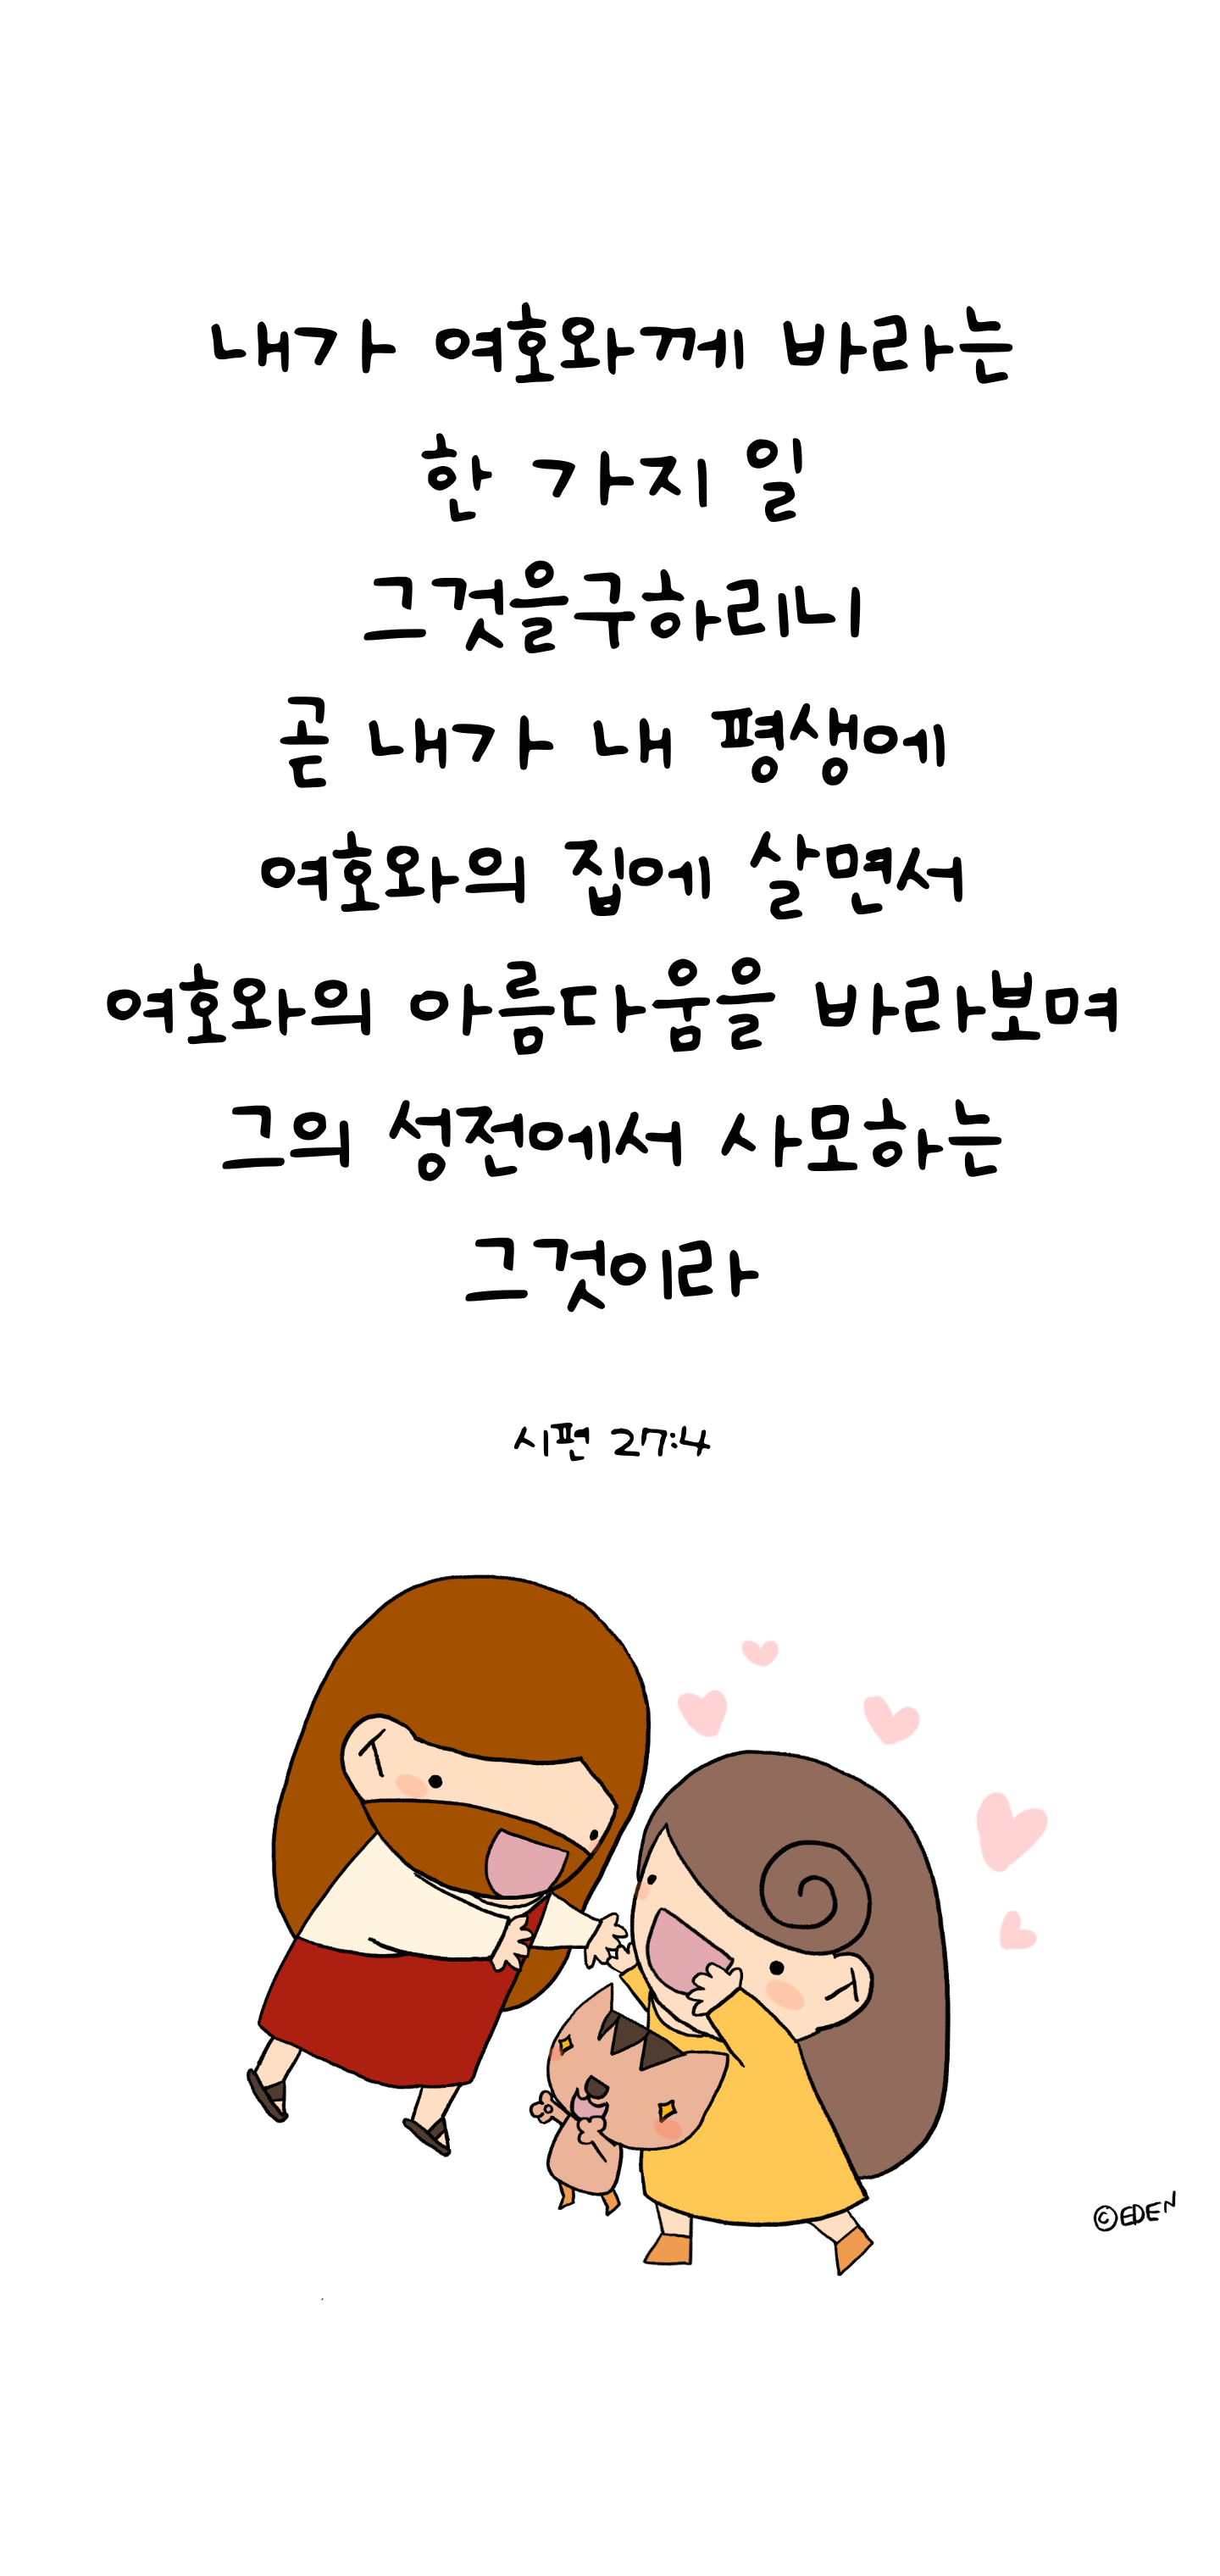 내가 여호와께 바라는
한 가지 일
그것을구하리니
곧 내가 내 평생에
여호와의 집에 살면서
여호와의 아름다움을 바라보며
그의 성전에서 사모하는
그것이라
시편 27:4
©EDEN